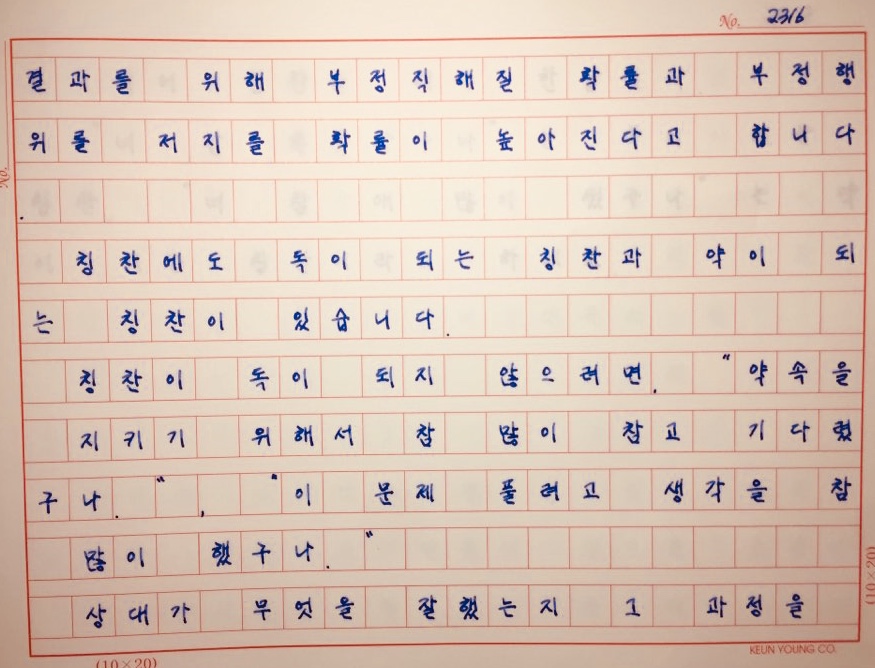 No. 2316
결과를 위해 부정직해질 확률과 부정행
위를 저지를 확률이 높아진다고 합니다
.
칭찬에도 독이 되는 칭찬과 약이 되
는 칭찬이 있습니다.
칭찬이 독이 되지 않으려면, "약속을
지키기 위해서 참 많이 참고 기다렸
구나.", "이 문제 풀려고 생각을 참
많이 했구나."
상대가 무엇을 잘했는지 그 과정을
KEUN YOUNG CO.
(10×20)
No.
(10×20)